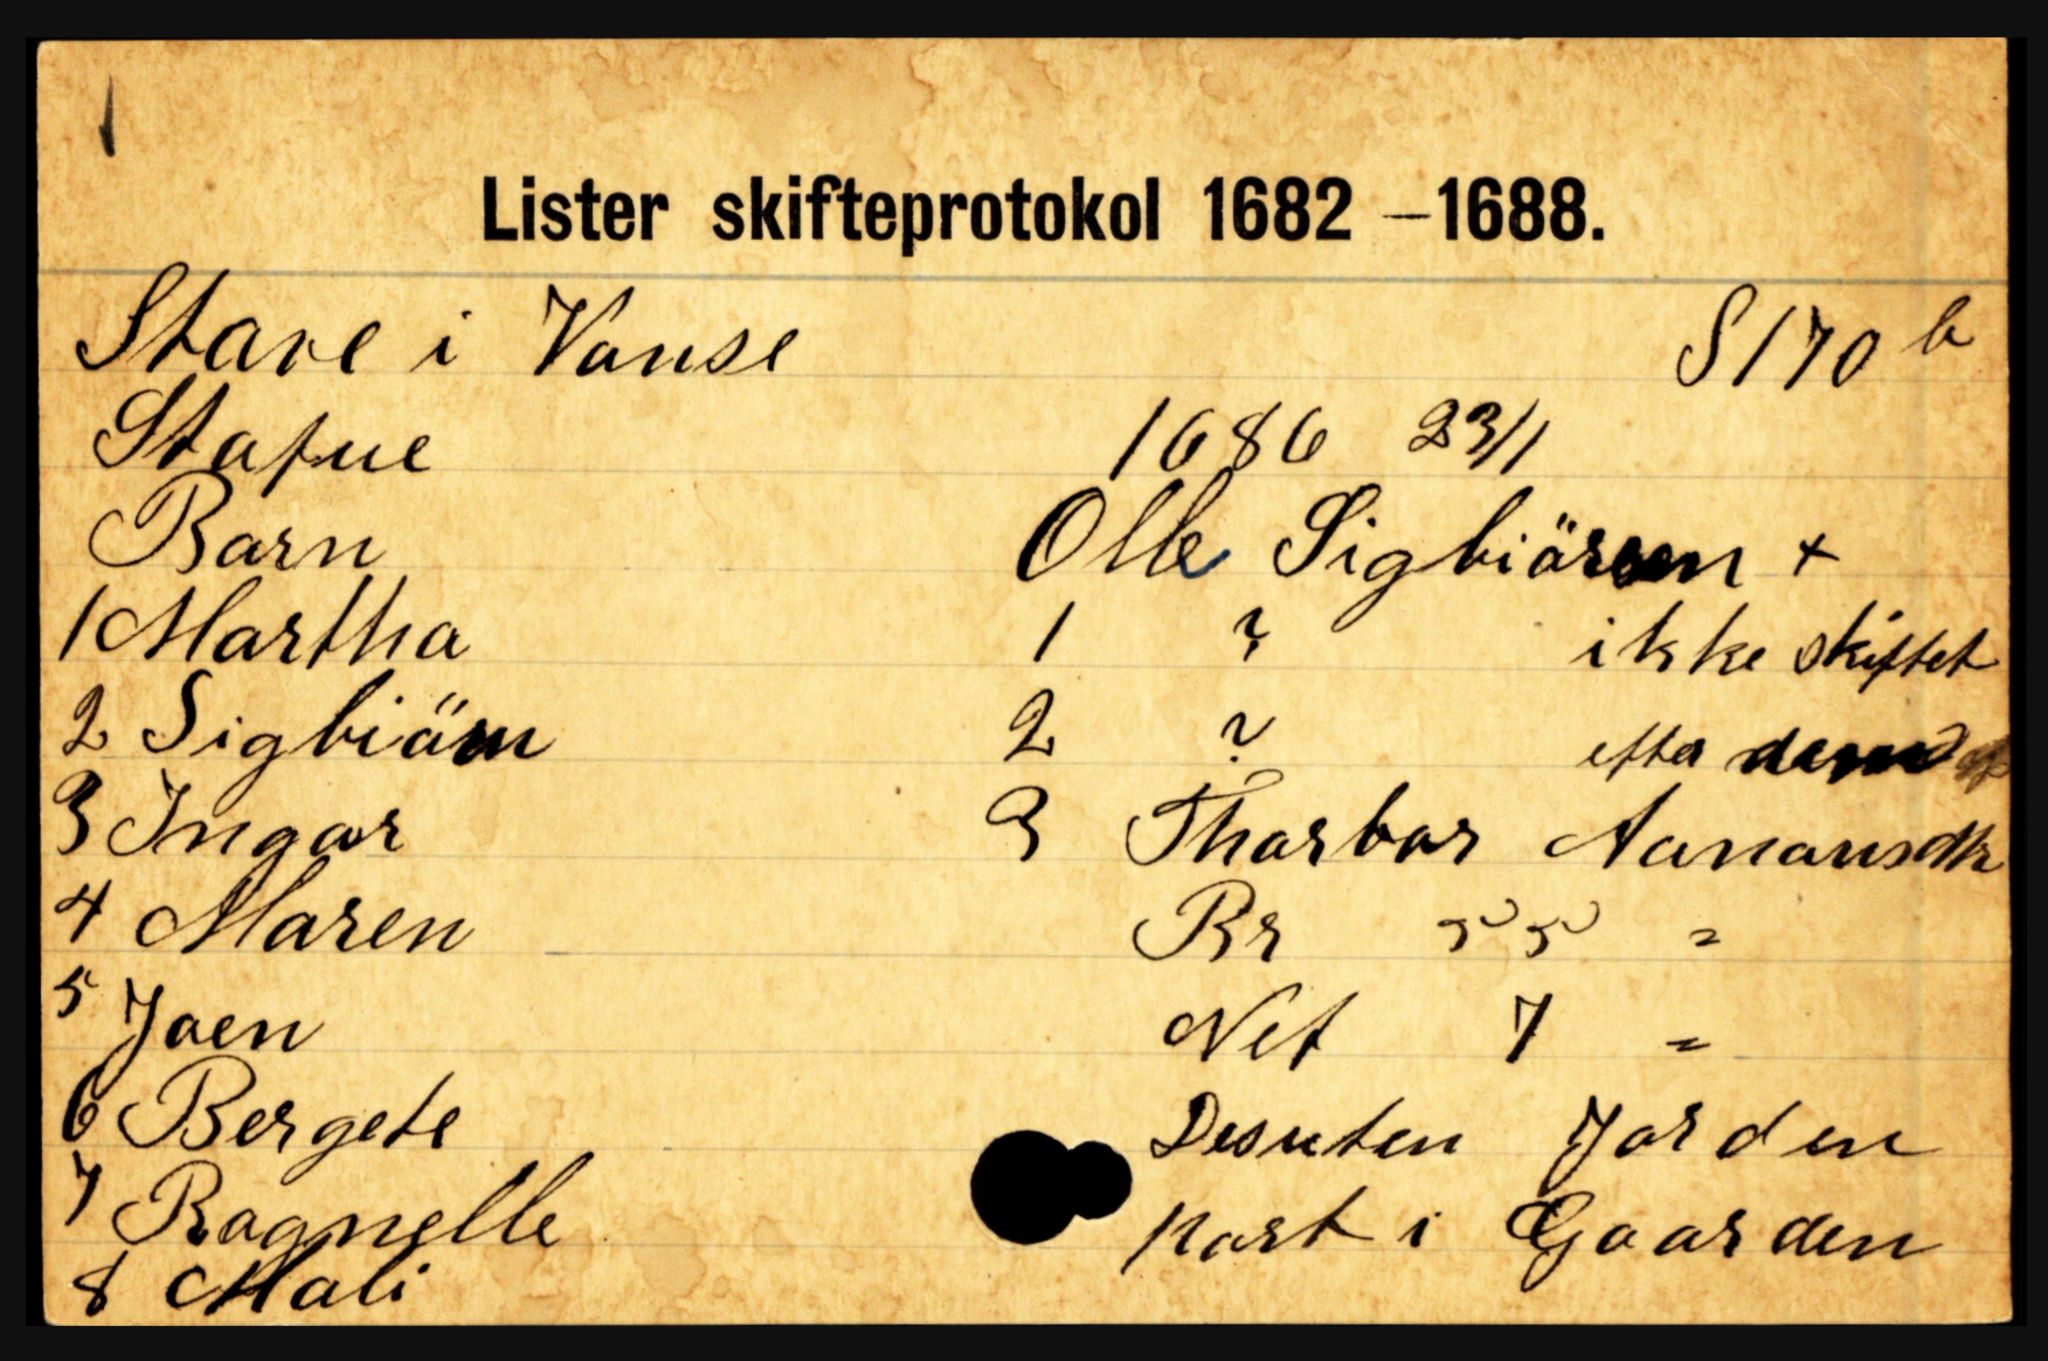 Lister skifteprotokol 1682 – 1688.
Stave i Vanse S 170 b
Stafue 1686 23/1
Barn Olle Sigbiörsen +
1 Martha 1 ? ikke skiftet
2 Sigbiörn 2 ? efter dem
3 Ingar 3 Tharbor Aanansdtr
4 Maren Br 55 "
5 Joen Net 7 "
6 Bergete Desuten Jorden
7 Ragnelle part i Gaarden
8 Mali